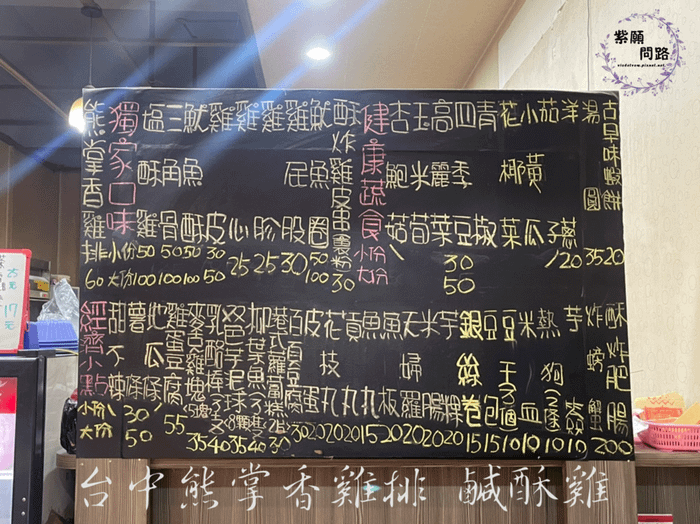 紫願
問路
熊掌香雞排 60
獨家口味
小份
大份
塩酥雞 50 100
三角骨 50 100
魷魚酥 50 100
雞皮 30 50
雞心 25
雞胗 25
雞屁股 30
魷魚圈 50 100
酥炸雞皮串
30
健康蔬食
小份
大份
杏鮑菇
玉米筍
高麗菜
四季豆
青椒
30
50
花椰菜
小黃瓜
茄子
洋蔥
20
湯圓 35
古早味蝦餅 20
經濟小點
小份
大份
甜不辣
薯條
地瓜條
30
50
雞蛋豆腐 55
35
40
35
40
港式蘿蔔糕 30
百頁豆腐 30
皮蛋 20
花枝丸 20
貢丸 20
魚丸 15
魚板 20
天婦羅 20
米腸 20
芋粿 20
銀絲卷 15
豆包 15
豆干 10
米血 10
熱狗 10
芋
10
炸螃蟹
酥炸肥腸 200
25元
17元
台中熊掌香雞排 鹹酥雞